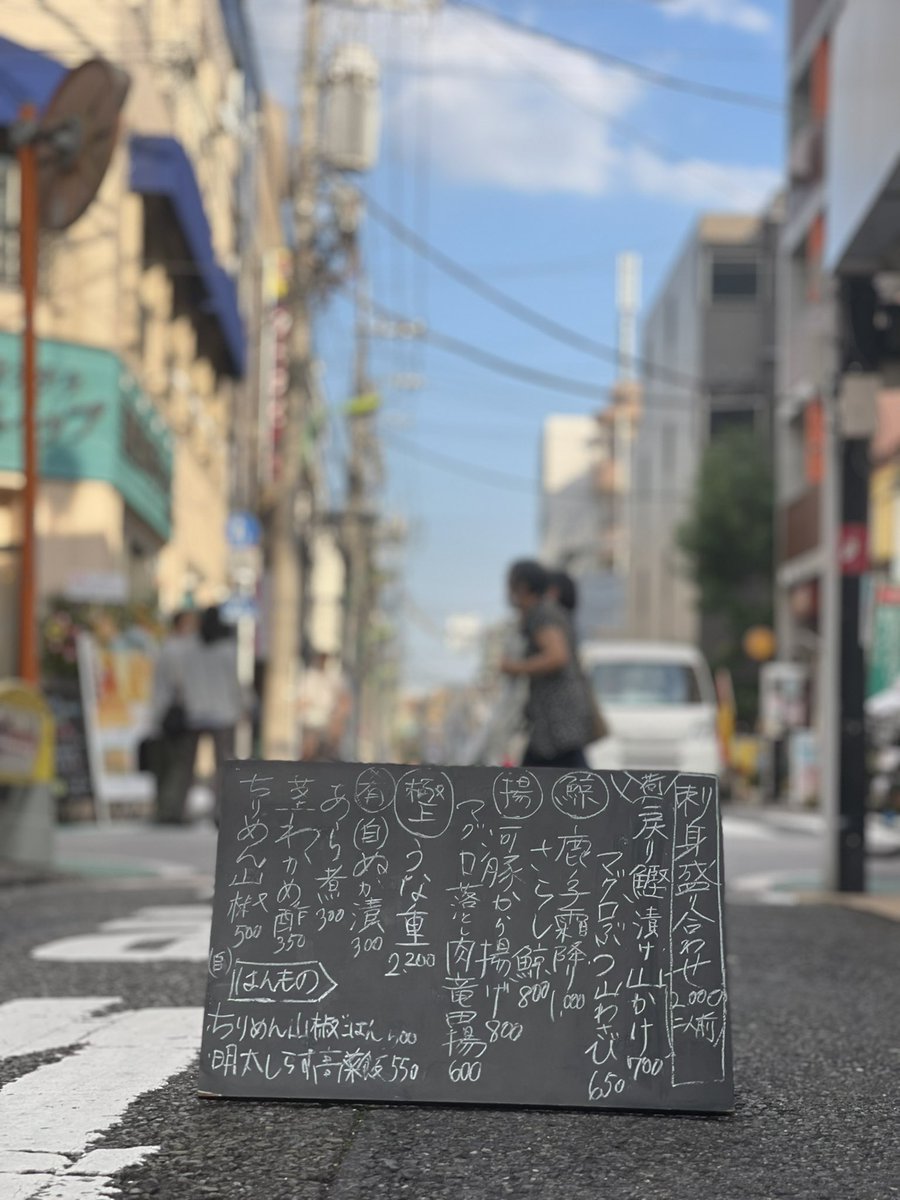 刺身盛り合わせ 2,000 二人前
戻り鰹 漬け 山かけ 700
マグロぶつ山わさび 650
鯨 鹿の子霜降 1,000
さらし鯨 800
揚 河豚から揚げ 800
マグロ落とし肉竜田揚 600
極上 うな重 2,200
自 ぬか漬 300
あら煮 300
茎わかめ酢 350
ちりめん山椒 500
自 はんもの
ちりめん山椒ごはん
明太しらす高菜飯 550